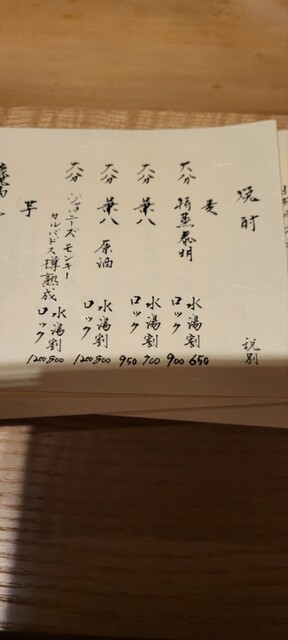 焼酎 税別
麦
大分 特蒸泰明 水湯割 650
ロック 900
大分 兼八 水湯割 700
ロック 950
大分 兼八 原酒 水湯割 900
ロック 1200
大分 ジャパニーズモンキー
カルバドス樽熟成 水湯割 900
ロック 1200
芋